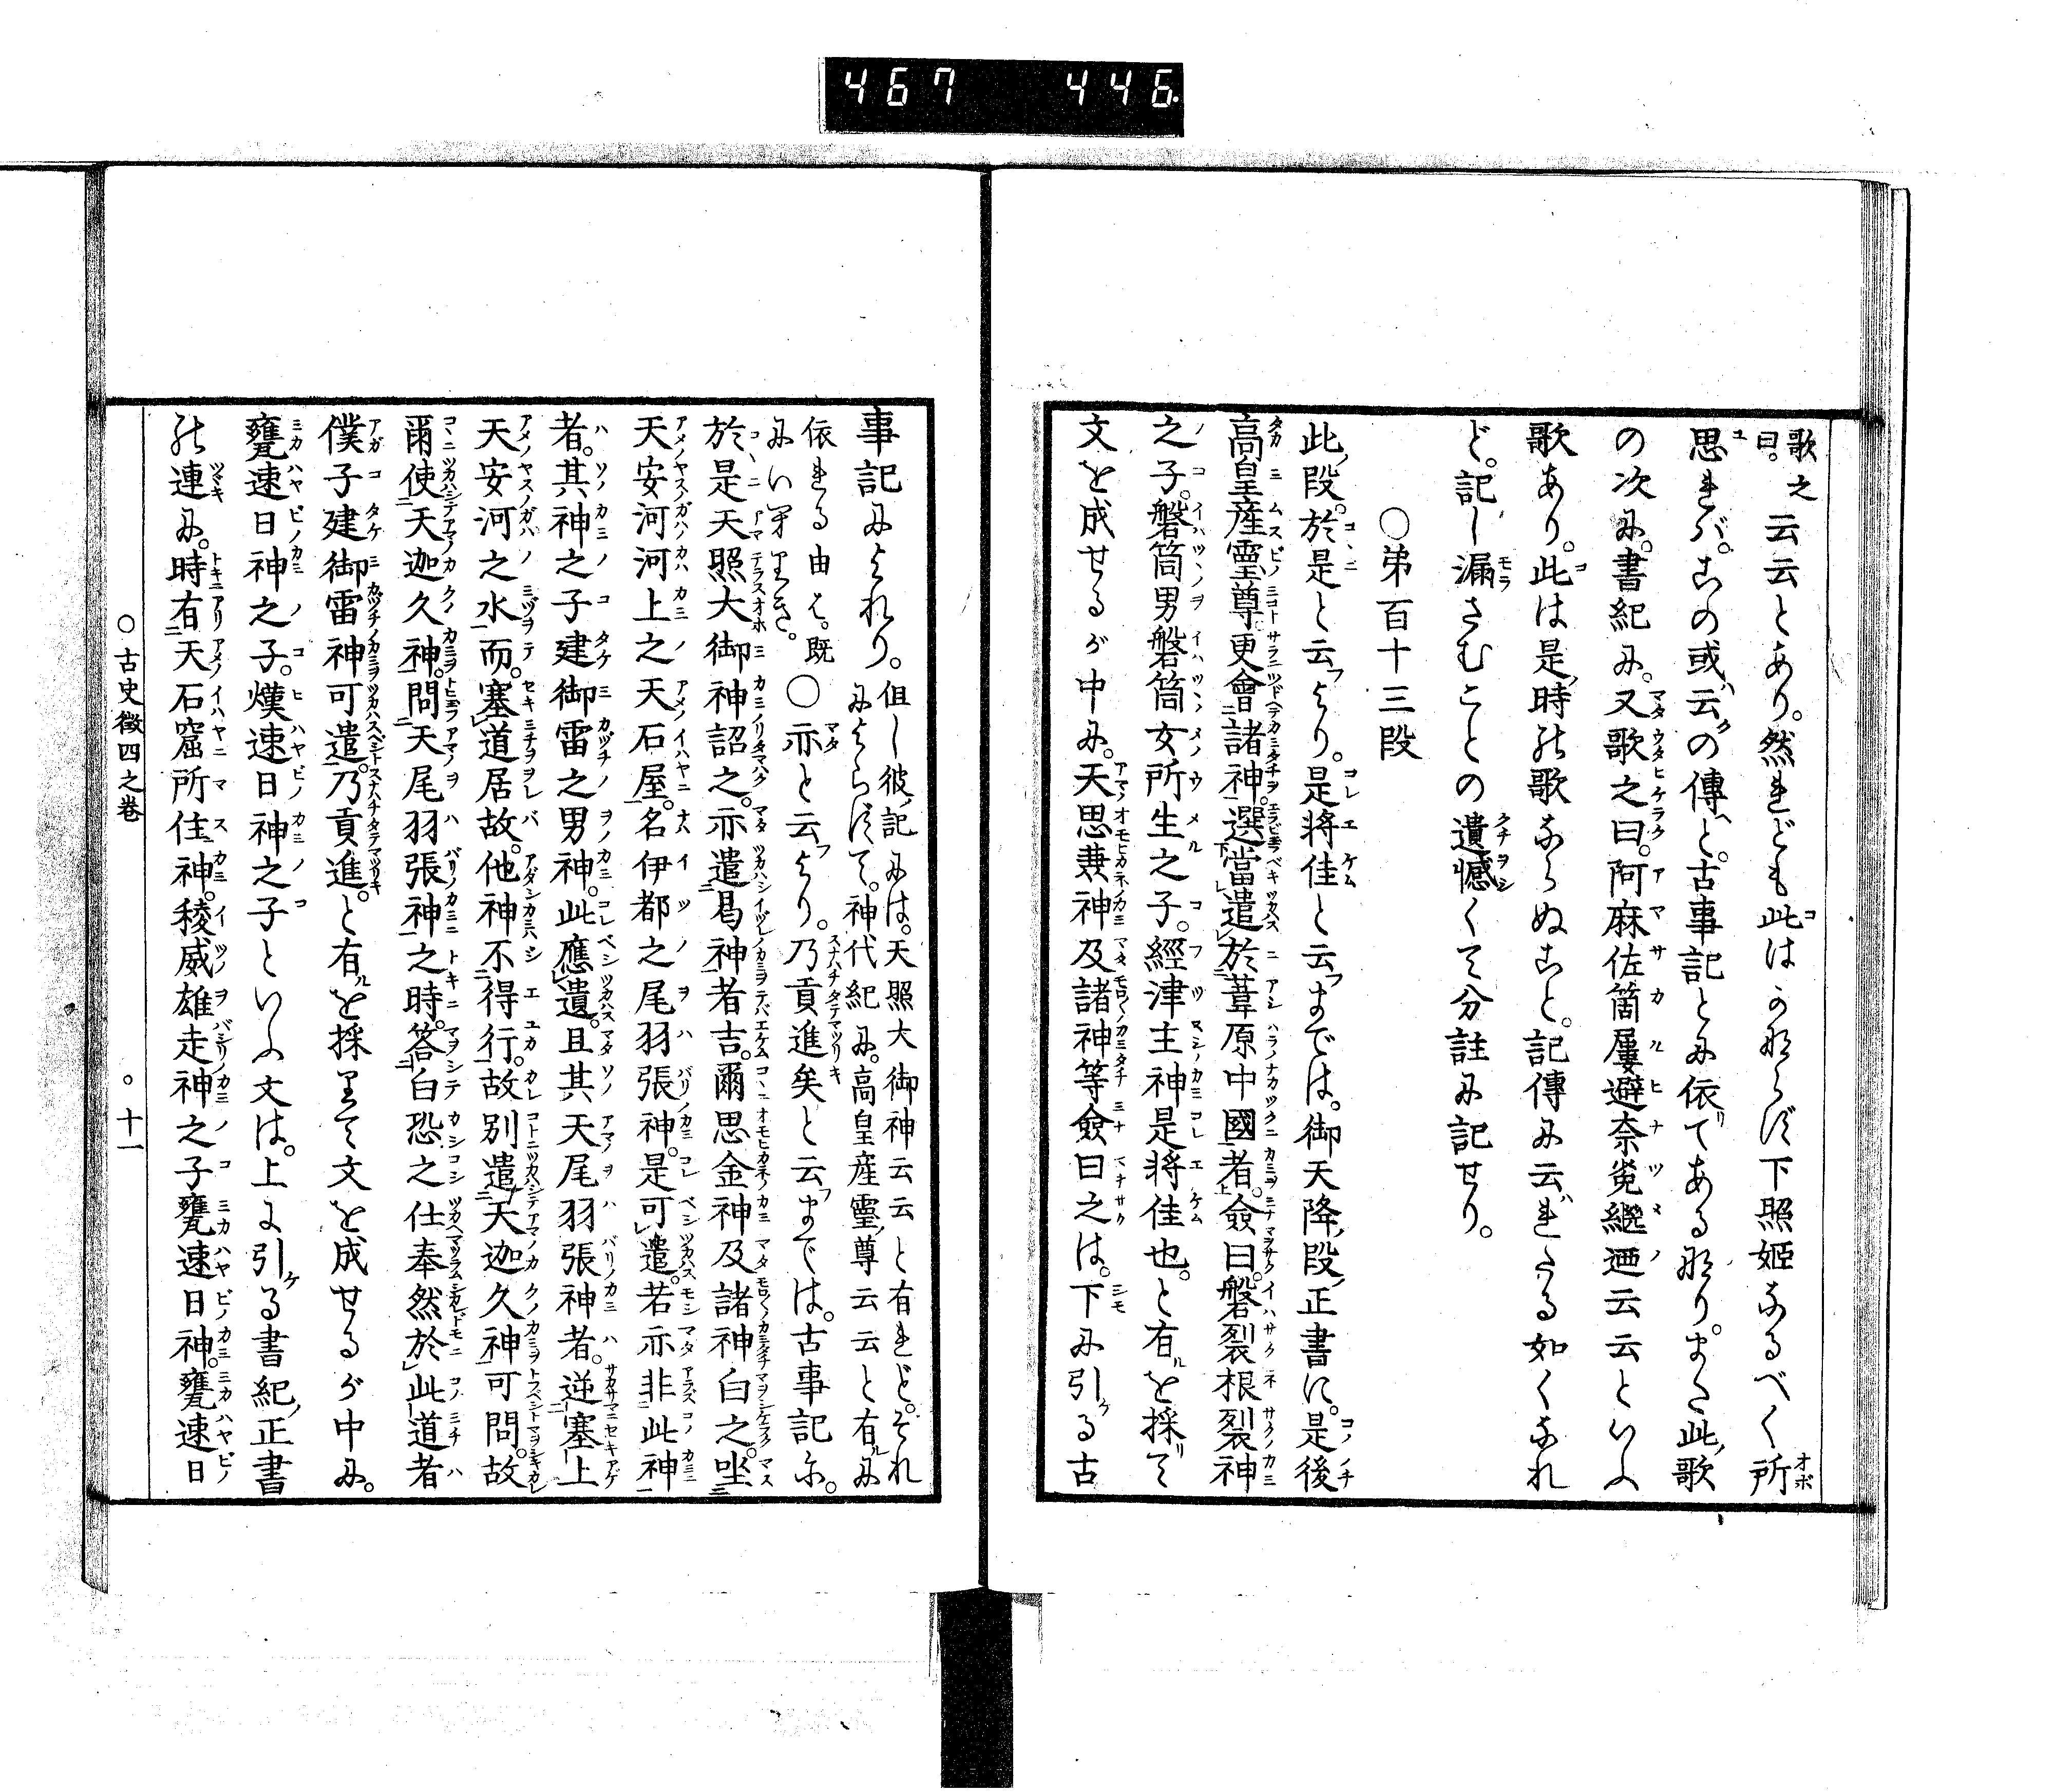 467 446
歌之曰。云云とあり。然れども此はかならず下照姫なるべく所
思れバ。この或云の傳と。古事記とに依てある故り。また此歌
の次に。書紀に。又歌之曰。阿麻佐箇屢避奈菟謎廼云云といふ
歌あり。此は是時の歌ならぬこと。記傳に云れたる如くなれ
ど。記し漏さむことの遺憾くて分註に記せり。
○弟百十三段
此段。於是と云より。是將佳と云までは。御天降段正書に。是後
高皇産靈尊更會諸神。選當遣於葦原中國者。僉曰。磐裂根裂神
之子。磐筒男磐筒女所生之子。經津主神是將佳也。と有を採て
文を成せるが中に。天思兼神及諸神等僉曰之は。下に引る古
事記によれり。但し彼記には。天照大御神云云と有れど。それ
によらずて。神代紀に。高皇産靈尊云云と有に
依れる由は。既
にいへりき。○亦と云より。乃貢進矣と云までは。古事記に。
於是天照大御神詔之。亦遣曷神者吉。爾思金神及諸神白之。坐
天安河河上之天石屋。名伊都之尾羽張神。是可遣。若亦非此神
者。其神之子建御雷之男神。此應遣。且其天尾羽張神者。逆塞上
天安河之水而。塞道居故。他神不得行。故別遣天迦久神可問。故
爾使天迦久神。問天尾羽張神之時。答白恐之仕奉然於此道者
僕子建御雷神可遣。乃貢進。と有を採りて文を成せるが中に。
甕速日神之子。熯速日神之子といふ文は。上に引る書紀正書
の連に。時有天石窟所住神。稜威雄走神之子甕速日神。甕速日
○古史徴四之卷
○十一